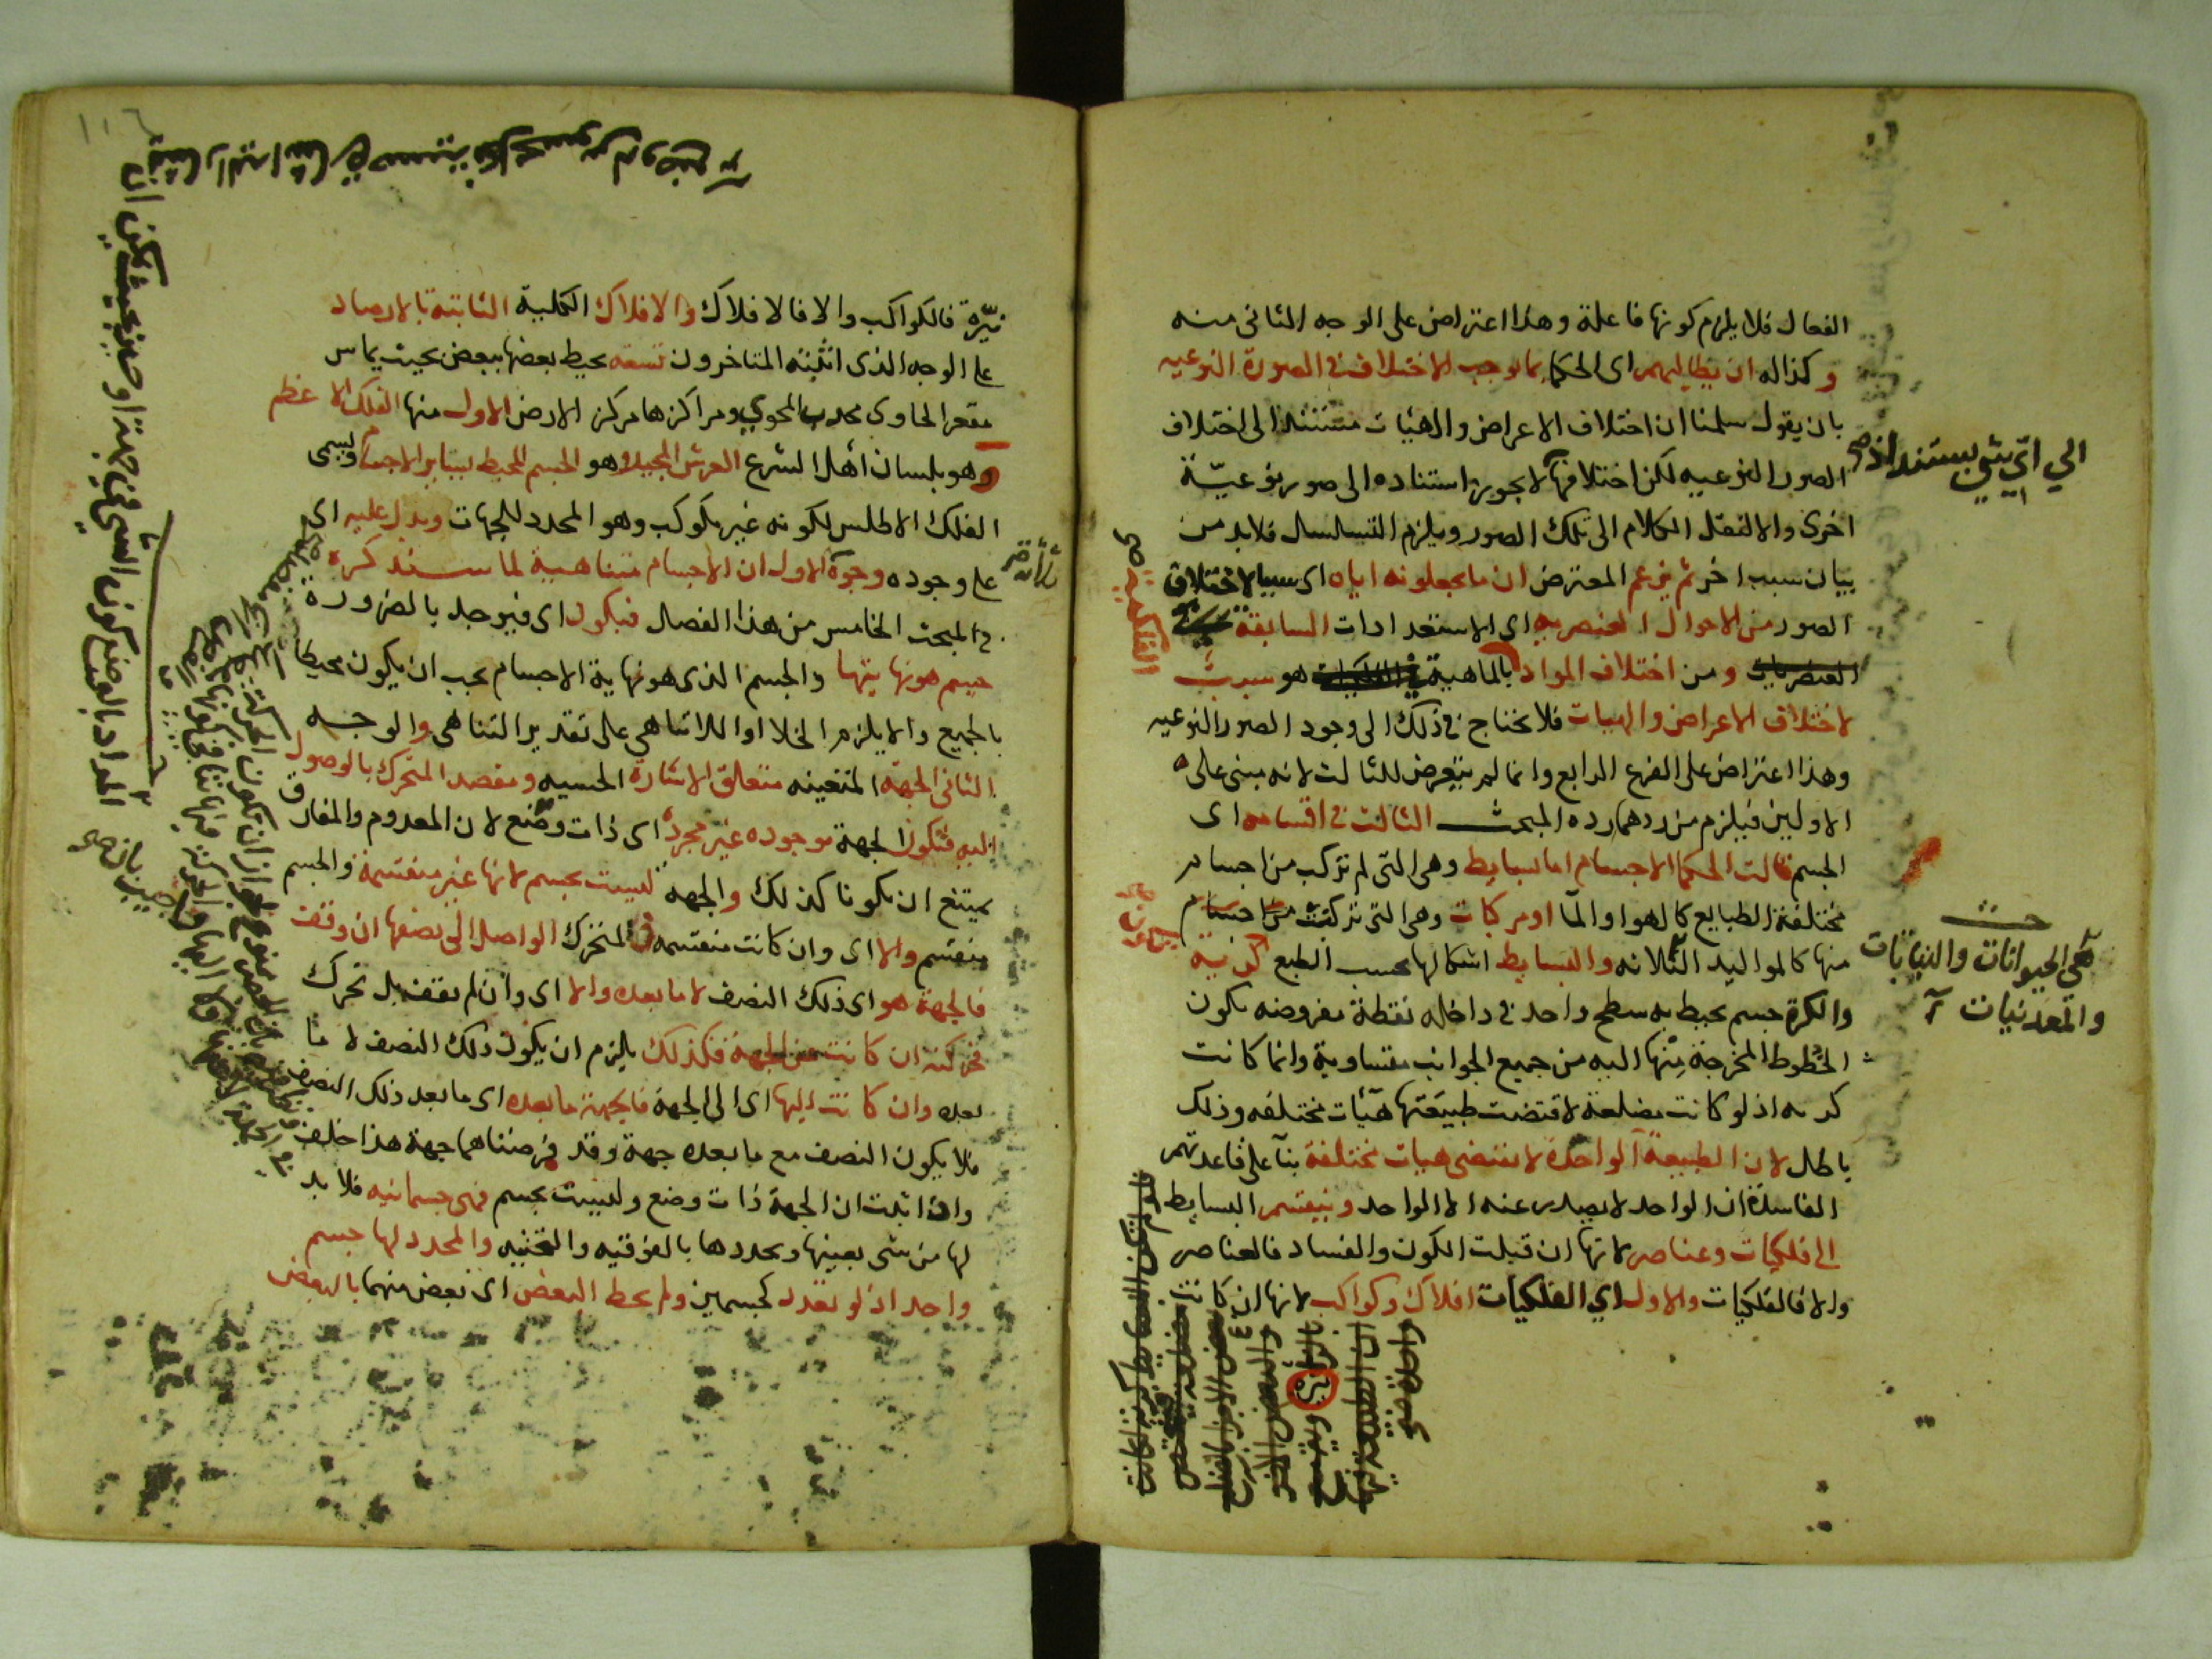 الفعال فلا يلزم كونها فاعلة وهذا اعتراض على الوجه الثانى منه
وكذاله ان يطالبهم اى الحكما بما يوجب الاختلاف فى الصورة النوعيه
بان يقول سلمنا ان اختلاف الاعراض والهيئات مستند الى اختلاف
الصور النوعيه لكن اختلافها لا يجوز استناده الى صور نوعيّة
اخرى والا لنقل الكلام الى تلك الصور ويلزم التسلسل فلا بد من
بيان سبب اخر ثم يزعم المعترض ان ما يجعلونه اياه اى سببا لاختلاف
الصور من الاحوال العنصريه اى الاستعدادات السابقة
ومن اختلاف المواد بالماهية هو سبب
لاختلاف الاعراض والهيات فلا يحتاج فى ذلك الى وجود الصور النوعيه
وهذا اعتراض على الفرع الرابع وانما لم يتعرض للثالث لانه مبنى على
الاولين فيلزم من ردهما رده المبحث الثالث فى اقسامه اى
الجسم قالت الحكما الاجسام اما بسايط وهى التى لم تركب من اجسام
مختلفة الطبايع كالهوا والمآ او مركبات وهى التى تركبت من اجسام
منها كالمواليد الثلاثه والبسايط اشكالها بحسب الطبع كرية
والكرة جسم يحيط به سطح واحد فى داخله نقطة مفروضه يكون
الخطوط المخرجة منها اليه من جميع الجوانب متساوية وانما كانت
كريه اذ لو كانت مضلعة لاقتضت طبيعتها هيئات مختلفه وذلك
باطل لان الطبيعة الواحدة لا تقتضى هيات مختلفة بنآ على قاعدتهم
الفاسدة ان الواحد لا يصدر عنه الا الواحد وينقسم البسايط
الى فلكيات وعناصر لانها ان قبلت الكون والفساد فالعناصر
والا فالفلكيات والاول اي الفلكيات افلاك وكواكب لانها ان كانت
الي اىّ شي يستند اذ صح
هى الحيوانات والنباتات
والمعدنيات
نيّرة فالكواكب والا فالافلاك والافلاك الكلية الثابتة بالارصاد
على الوجه الذى اثبته المتاخرون تسعه يحيط بعضها ببعض بحيث يماس
مقعر الحاوى محدب المحوي ومراكزها مركز الارض الاول منها الفلك الاعظم
وهو بلسان اهل الشرع العرش المجيد وهو الجسم المحيط بساير الاجسام ويسمى
الفلك الاطلس لكونه غير مكوكب وهو المحدد للجهات ويدل عليه اى
على وجوده وجوه الاول ان الاجسام متناهية لما سنذكره
فى المبحث الخامس من هذا الفصل فيكون اى فيوجد بالضرورة
جسم هو نهايتها والجسم الذى هو نهاية الاجسام يجب ان يكون محيطا
بالجميع والا يلزم الخلا او اللاتناهى على تقدير التناهى والوجه
الثانى الجهة المتعينه متعلق الاشارة الحسيه ومقصد المتحرك بالوصول
اليه فتكون الجهة موجوده غير مجردة اى ذات وضع لان المعدوم والمفارق
يمتنع ان يكونا كذلك والجهه ليست بجسم لانها غير منقسمة والجسم
منقسم والا اى وان كانت منقسمه فالمتحرك الواصل الى نصفها ان وقف
فالجهة هو اى ذلك النصف لا ما بعده والا اى وان لم يقف بل تحرك
فحركته ان كانت عن الجهة فكذلك يلزم ان يكون ذلك النصف لا ما
بعده وان كانت اليها اى الى الجهة فالجهة ما بعده اى ما بعد ذلك النصف
فلا يكون النصف مع ما بعده جهة وقد فرضناهما جهة هذا خلف
واذا ثبت ان الجهة ذات وضع وليست بجسم فهى جسمانيه فلا بد
لها من شى يعينها ويحددها بالفوقيه والتحتيه والمحدد لها جسم
واحد اذ لو تعدد كجسمين ولم يحط البعض اى بعض منهما بالبعض
ثلاثة
المراد بالوضع كون الشئ في جهة او حيز بحيث يمكن ان